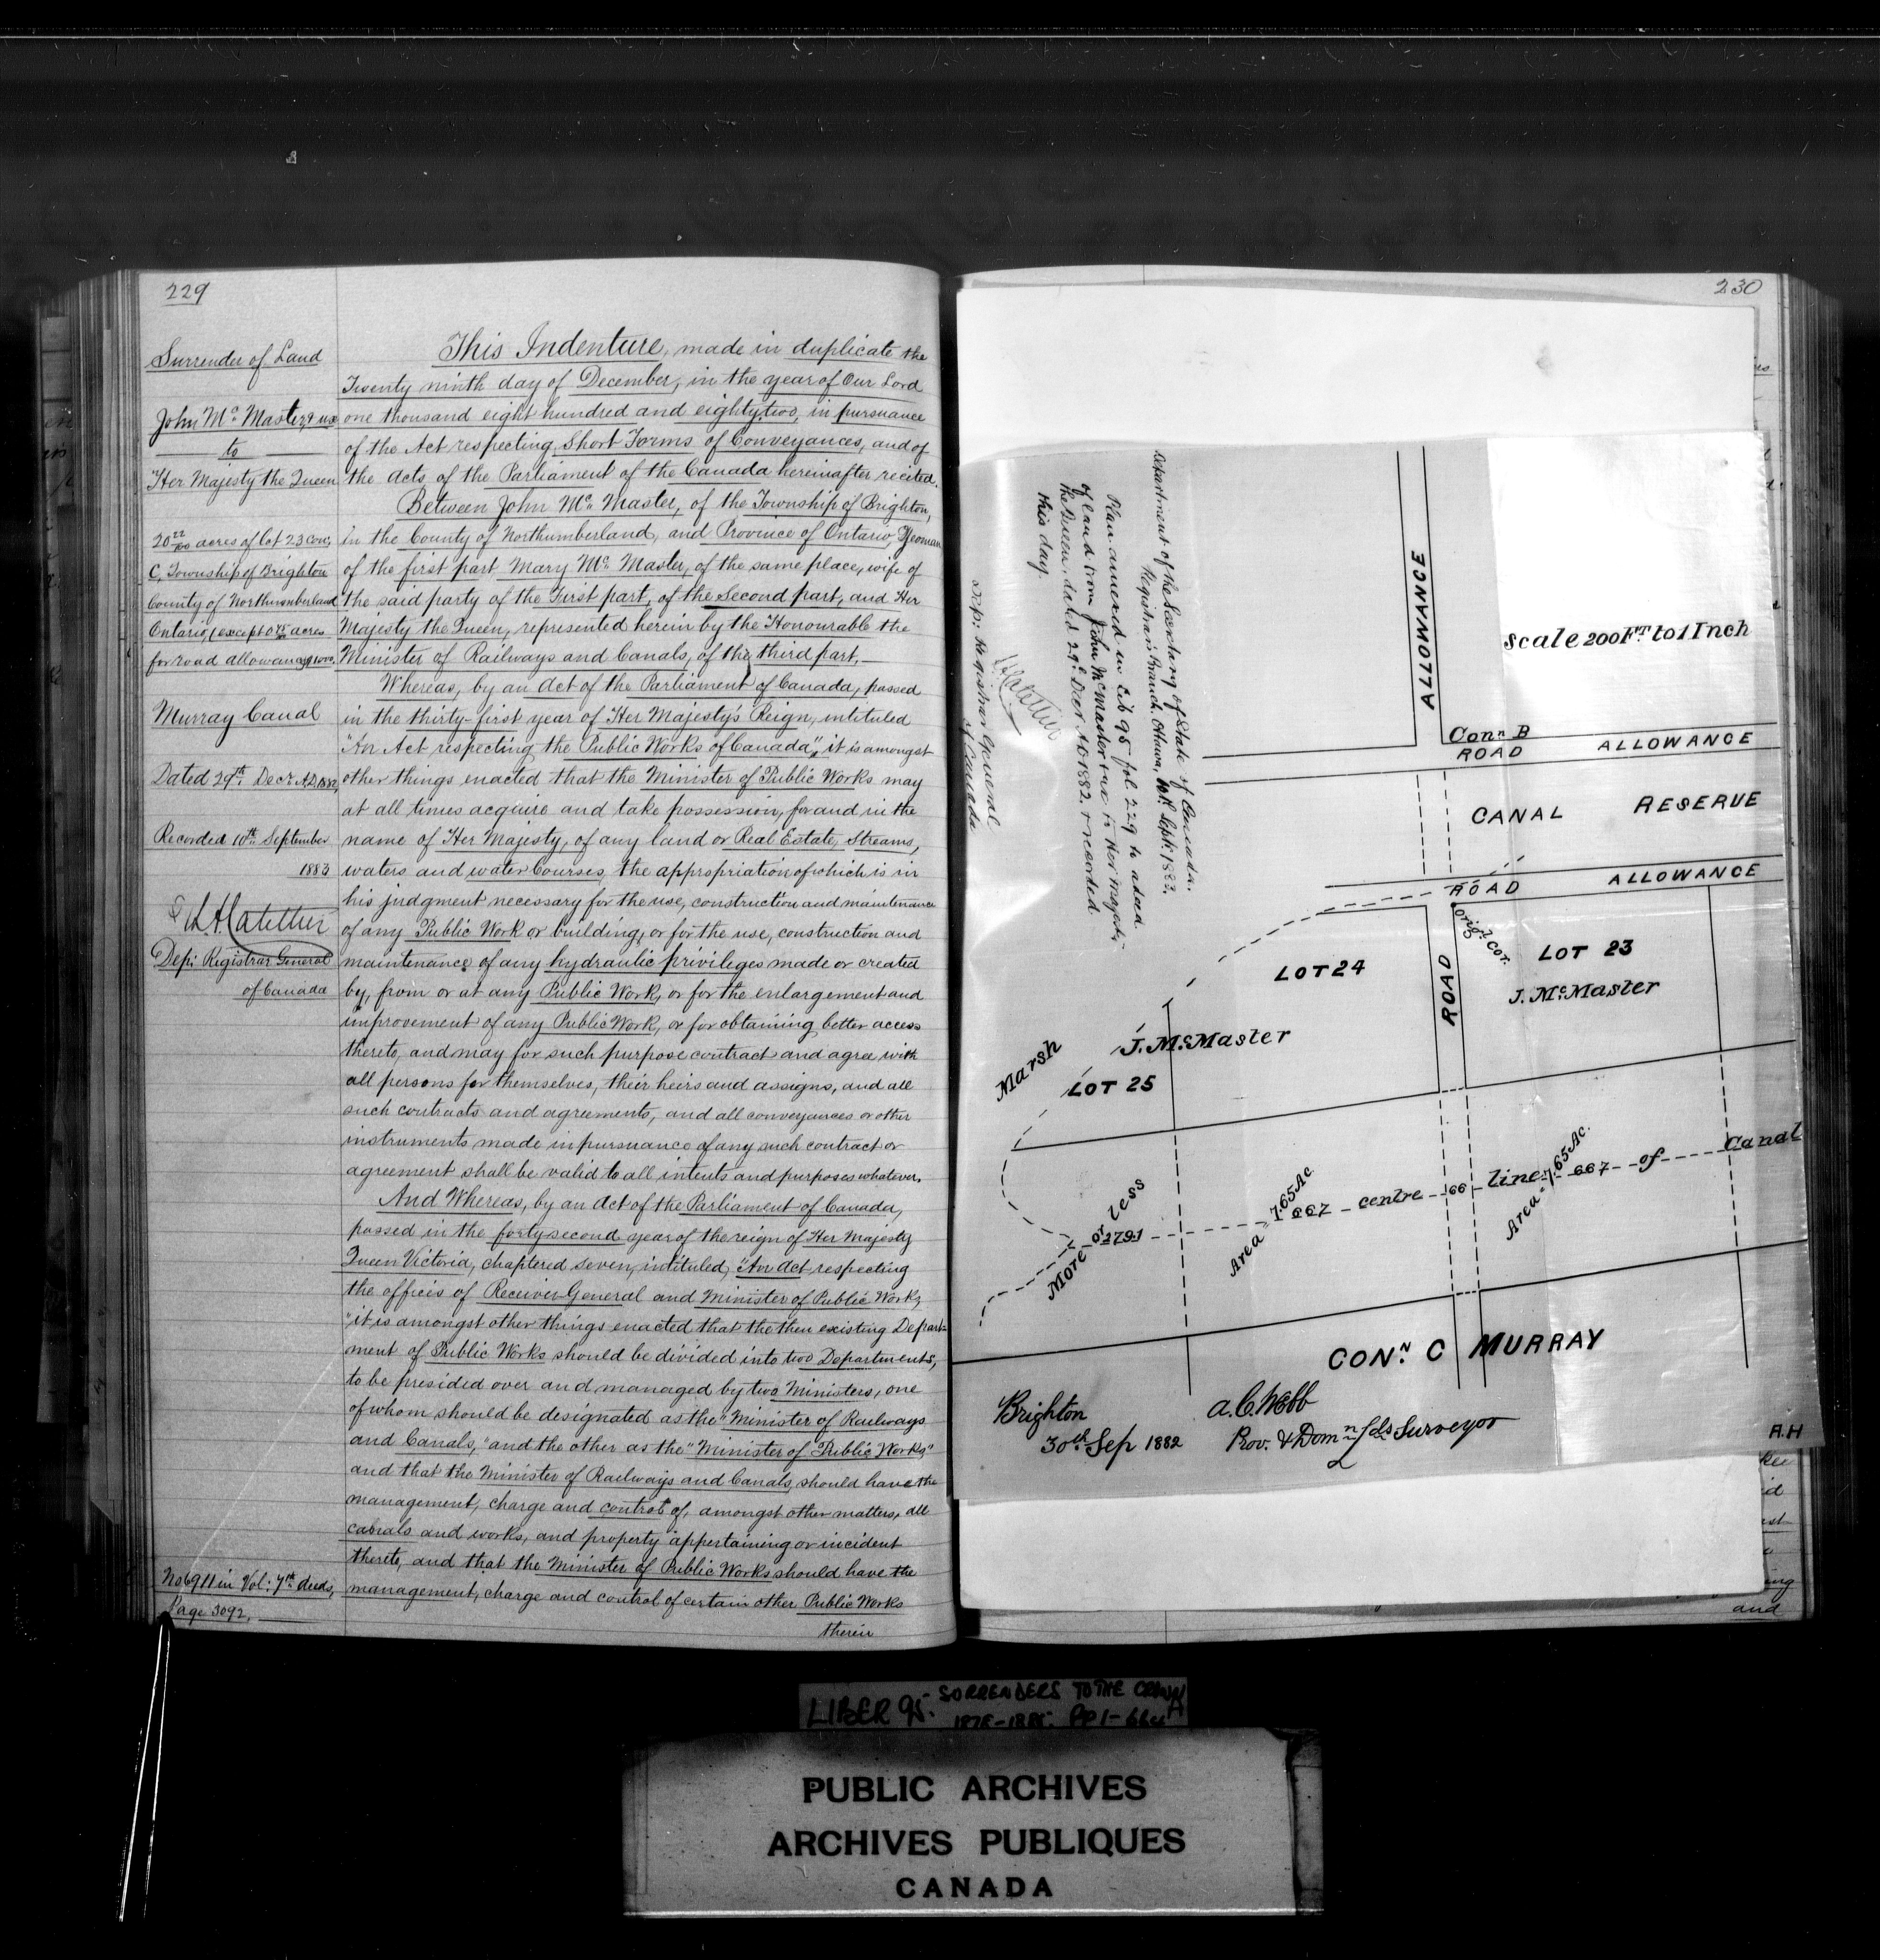 229
Surrender of Land
John Mc. Master & ux
to
Her Majesty the Queen
20 22/100 acres of lot 23 Con:
C, Township of Brighton
County of Northumberland
Ontario, (except 0 75 acres
for road allowance)
Murray Canal
Dated 29th Decr. A.D. 1882
Recorded 10th September
1883
L. A. Catellier
Dep: Registrar General
of Canada
No 6911 in Vol: 7th deeds,
Page 3092,
This Indenture, made in duplicate the
Twenty ninth day of December, in the year of Our Lord
one thousand eight hundred and eighty, two, in pursuance
of the Act respecting Short Forms of Conveyances, and of
the Acts of the Parliament of the Canada hereinafter recited.
Between John Mc. Master, of the Township of Brighton,
in the County of Northumberland, and Province of Ontario, Yeoman
of the first part Mary Mc. Master, of the same place, wife of
the said party of the First part, of the Second part, and Her
Majesty the Queen, represented herein by the Honourable the
Minister of Railways and Canals, of the third part,—
Whereas, by an Act of the Parliament of Canada, passed
in the thirty-first year of Her Majesty's Reign, intituled
"An Act respecting the Public Works of Canada", it is amongst
other things enacted that the Minister of Public Works may
at all times acquire and take possession, for and in the
name of Her Majesty, of any land or Real Estate, Streams,
waters and water Courses, the appropriation of which is in
his judgment necessary for the use, construction and maintenance
of any Public Work or building, or for the use, construction and
maintenance of any hydraulic privileges made or created
by, from or at any Public Work, or for the enlargement and
improvement of any Public Work, or for obtaining better access
thereto, and may for such purpose contract and agree with
all persons for themselves, their heirs and assigns, and all
such contracts and agreements, and all conveyances or other
instruments made in pursuance of any such contract or
agreement shall be valid to all intents and purposes whatever.
And Whereas, by an Act of the Parliament of Canada,
passed in the forty second year of the reign of Her Majesty
Queen Victoria, chaptered seven, intituled, "An Act respecting
the offices of Receiver General and Minister of Public Works,
"it is amongst other things enacted that the then existing Depart-
ment of Public Works should be divided into two Departments,
to be presided over and managed by two Ministers, one
of whom should be designated as the "Minister of Railways
and Canals," and the other as the "Minister of Public Works"
and that the Minister of Railways and Canals, should have the
management, charge and control of, amongst other matters, all
canals and works, and property appertaining or incident
thereto, and that the Minister of Public Works should have the
management, charge and control of certain other Public Works
therein
230
Department of the Secretary of State of Canada.
Registrar's Branch, Ottawa, 10th Sept. 1883.
Plan annexed in Lib 95 fol. 229 to a deed
of land from John McMaster & ux to Her Majesty
the Queen, dated 29th Decr. AD 1882. & recorded
this day.
LACatellier
Dep: Registrar General
of Canada
ALLOWANCE
Scale 200 FT to 1 Inch
Conn B
ROAD ALLOWANCE
CANAL RESERVE
ROAD ALLOWANCE
Orig.l Cor.
LOT 24
ROAD
LOT 23
J. McMaster
J. McMaster
Marsh
LOT 25
More or less
2791
Area 7.65 Ac.
667 centre 66 line 667 of Canal
Area = 7.65 Ac.
CON.N C MURRAY
Brighton
30th Sep 1882
A. C. Webb
Prov. & Domn Lds Surveyor
A.H
and
LIBER 95. SURRENDERS TO THE CROWN
PUBLIC ARCHIVES
ARCHIVES PUBLIQUES
CANADA